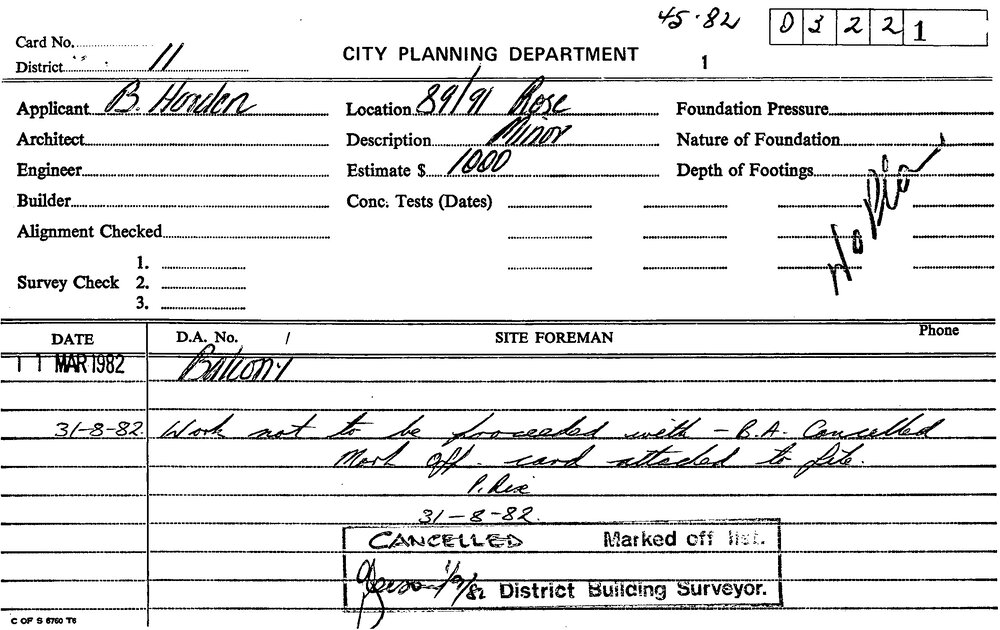 45·82 0 3 2 2 1
Card No.
District 11
CITY PLANNING DEPARTMENT
1
Applicant B. Howden Location 89/91 Rose Foundation Pressure
Architect Description Minor Nature of Foundation
Engineer Estimate $ 1000 Depth of Footings
Builder Conc. Tests (Dates)
Alignment Checked
No
1.
Survey Check 2.
3.
DATE D.A. No. / SITE FOREMAN Phone
11 MAR 1982 Balcony
31-8-82. Work not to be proceeded with - B.A. Cancelled
Mark Off. card attached to file.
P. Rix
31-8-82.
CANCELLED Marked off list.
1/9/82 District Building Surveyor.
C OF S 6760 T6